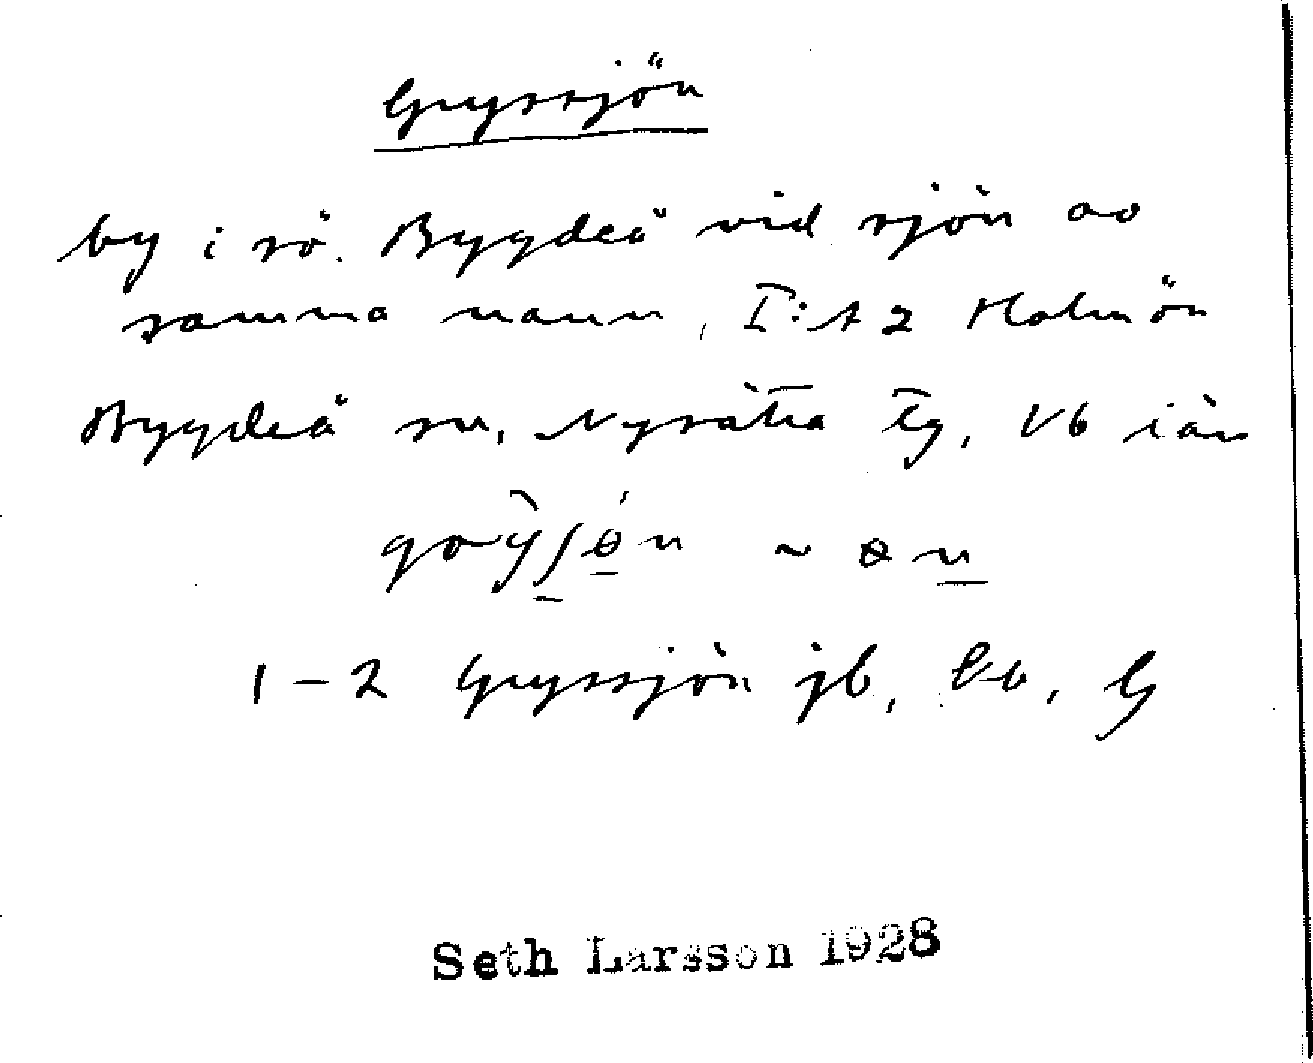 Gryssjön
by i sö. Bygdeå vid sjön av
samma namn, I: A 2 Holmön
Bygdeå sn, Nysätra tg, Vb län
1 – 2 Gryssjön jb, Eb, G
Seth Larsson 1928